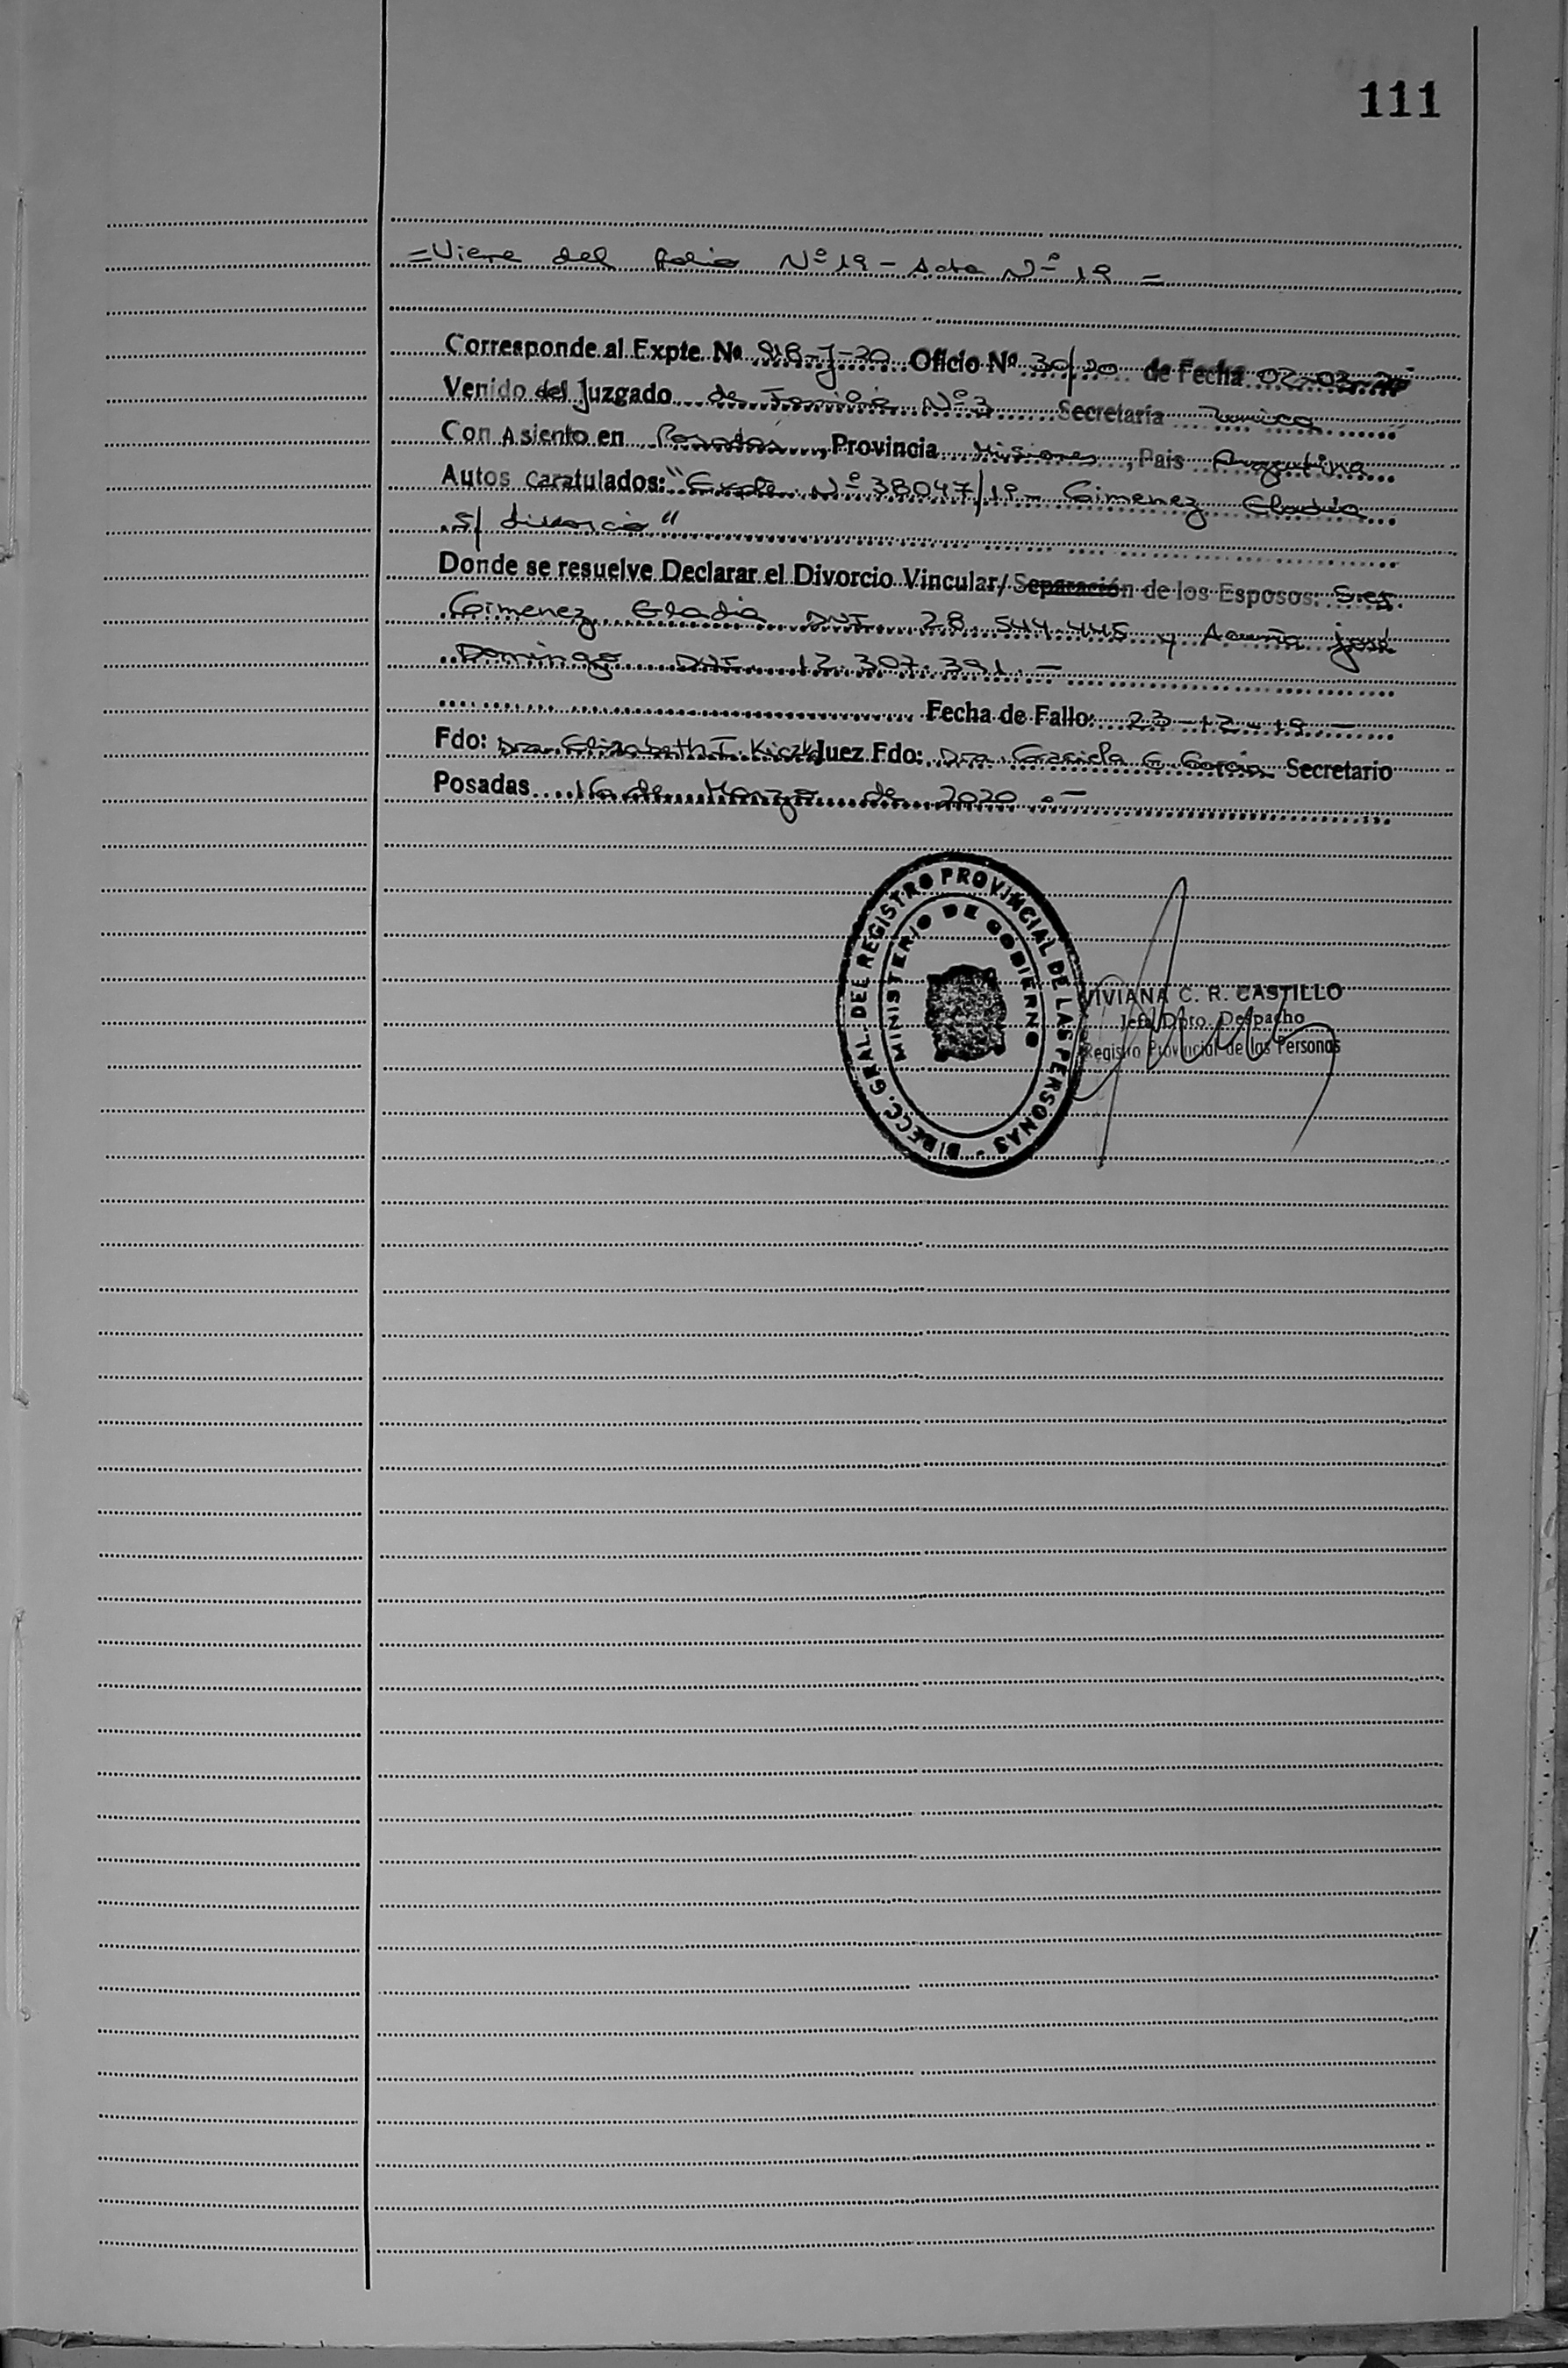 111
=Viene del folio Nº 19 - Acta Nº 19 =
Corresponde al Expte. Nº 918-J-20 Oficio Nº 30/20 de Fecha 02-03-20
Venido del Juzgado de Familia Nº 3 Secretaría Única
Con Asiento en Posadas, Provincia Misiones, Pais Argentina
Autos Caratulados: "Expte. Nº 38047/19 - Gimenez Gladis
s/ divorcio"
Donde se resuelve Declarar el Divorcio Vincular/Separación de los Esposos: Sres.
Gimenez DNI. 28.544.445 y Acuña José
Domingo DNI. 12.307.391.-
Fecha de Fallo: 23-12-19-
Fdo: Dra. Elizabeth T. Kiczka Juez Fdo: Dra. Graciela G. Garcia Secretario
Posadas 16 de Marzo de 2020.-
DIRECC. GRAL. DEL REGISTRO PROVINCIAL DE LAS PERSONAS -
MINISTERIO DE GOBIERNO
VIVIANA C. R. CASTILLO
Jefa Dpto. Despacho
Registro Provincial de las Personas